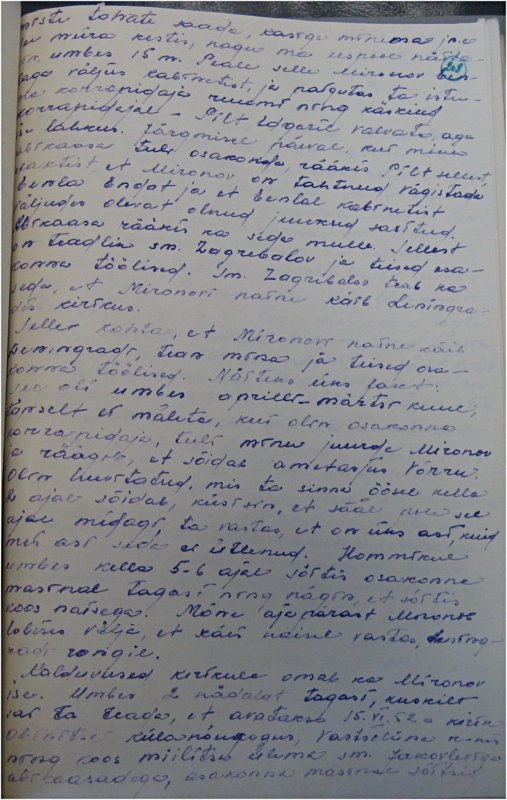 miste tahate saada, kasige minema ja
ei mina kestis, nagu ma eespool näida-
sin, umbes 15 m. Peale selle Mironov
208
aga väljus kabinetist, ja paigutas ta istu-
ma korrapidaja ruumi ning käskis
korrapidajal – Pilt Edgaril valvata, aga
ise lahkus. Järgmisel päeval, kui minu
abikaasa tuli osakonda, rääkis Pilt sellest
faktist, et Mironov on tahtnud vägistada
Eenla Endat ja et Eenlal kabinetist
väljudes olevat olnud juuksed sasitud.
Abikaasa rääkis ka seda mulle. Sellest
on teadlik sm. Zagrebalov ja teised osa-
konna töölised. Sm. Zagrebalov teab ka
seda, et Mironovi naine käib Leningra-
dis kirikus.
Selle kohta, et Mironovi naine käib
Leningradis, tean mina ja teised osa-
konna töölised. Näiteks üks fakt:
see oli umbes aprilli-märtsi kuus,
täpselt ei mäleta, kui olin osakonna
korrapidaja, tuli minu juurde Mironov
ja räägib, et sõidab ametasjus Võrru.
Olin huvitatud, mis ta sinna öösel kella
2 ajal sõidab, küsisin, et sääl pole sel
ajal midagi, ta vastas, et on üks asi, kuid
mis asi seda ei ütelnud. Hommikul
umbes kella 5-6 ajal sõitis osakonna
masinal tagasi ning nägin, et sõitis
koos naisega. Mõne aja pärast Mironov
lobises välja, et käis naisel vastas, Lening-
radi rongile.
Kalduvused kirikule omab ka Mironov
ise. Umbes 2 nädalat tagasi, kuskilt
sai ta teada, et avatakse 15. VI. 52. a kirik
Obinitsa külanõukogus, Vastseliina r-nis
ning koos miilitsa ülema sm. Jakovleviga
abikaasadega, osakonna masinal sõitsid